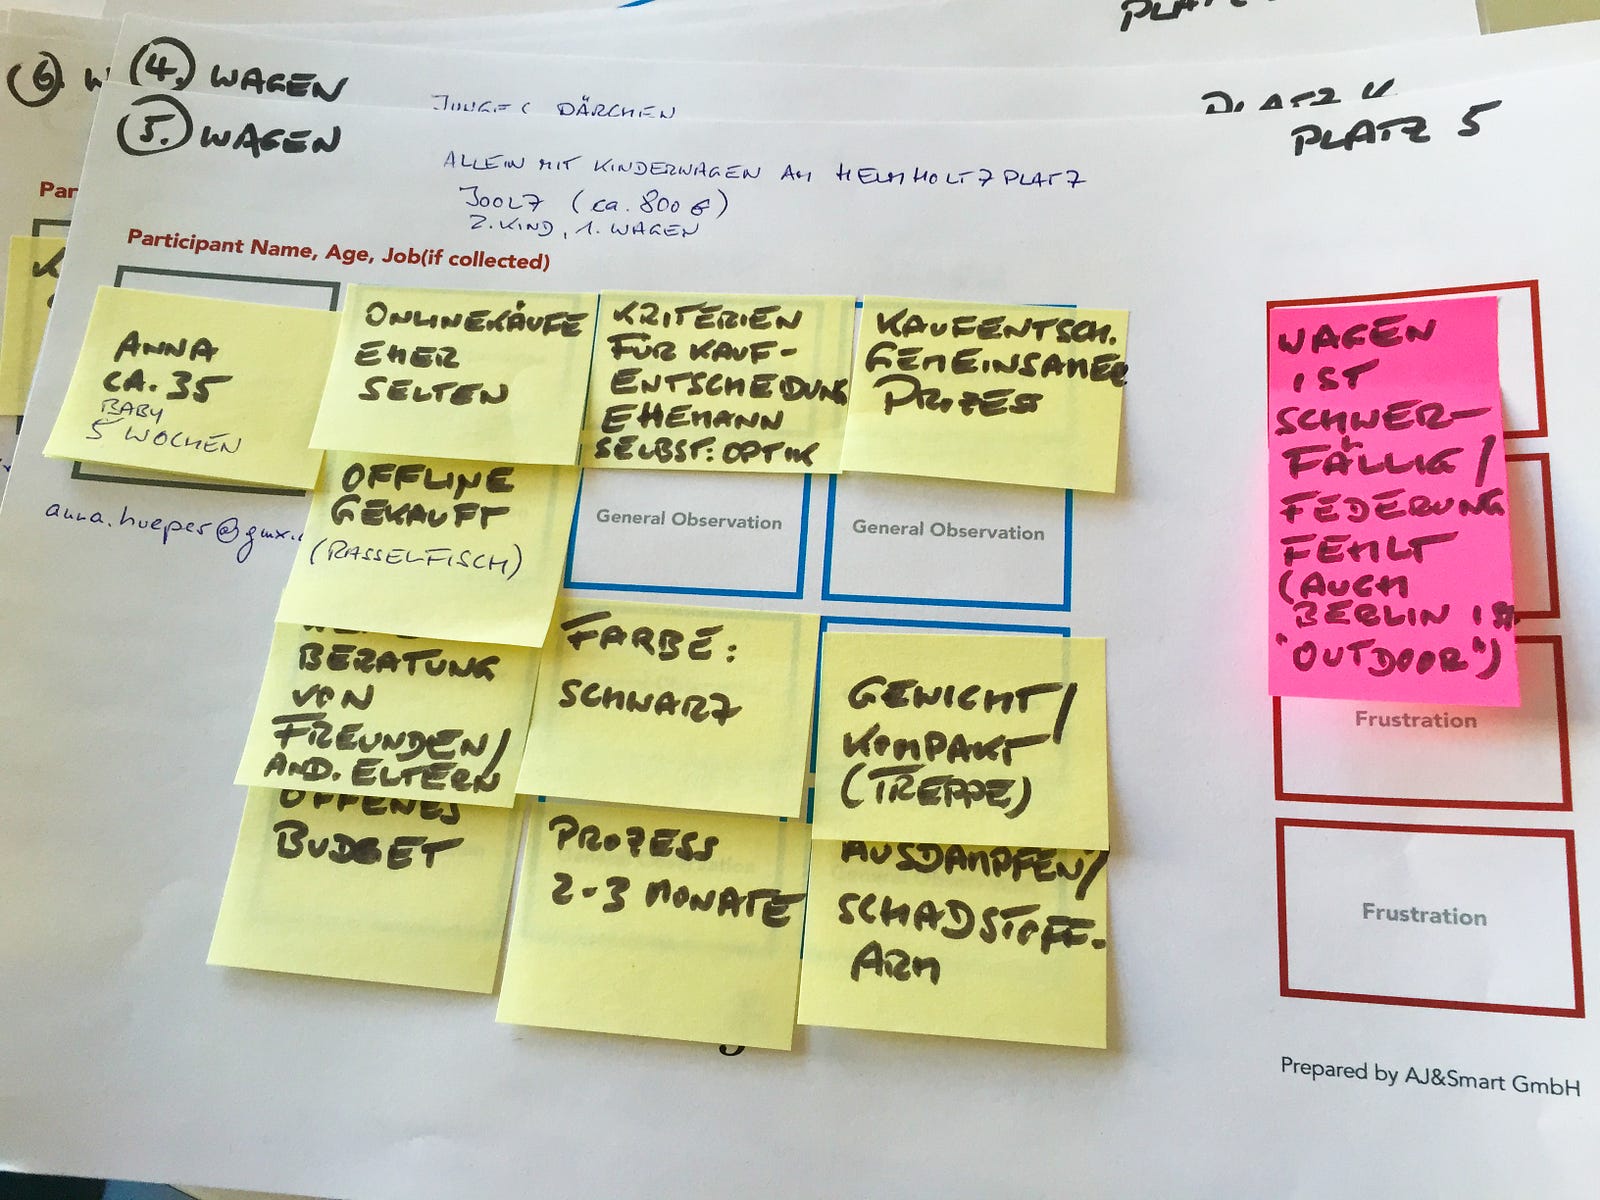 PLATZ
6. W
4. WAGEN
PÄRCHEN
PLATZ
5. WAGEN
PLATZ 5
ALLEIN MIT KINDERWAGEN AM HELMHOLTZPLATZ
JOOLZ (ca. 800 €)
2. KIND, 1. WAGEN
Par
Participant Name, Age, Job(if collected)
ANNA
CA. 35
BABY
5 WOCHEN
ONLINEKÄUFE
EHER
SELTEN
KRITERIEN
FÜR KAUF-
ENTSCHEIDUNG
EHEMANN
SELBST: OPTIK
KAUFENTSCH.
GEMEINSAMER
PROZESS
WAGEN
IST
SCHWER-
FÄLLIG/
FEDERUNG
FEHLT
(AUCH
BERLIN IST
"OUTDOOR")
OFFLINE
GEKAUFT
(RASSELFISCH)
General Observation
General Observation
BERATUNG
VON
FREUNDEN/
AND. ELTERN
FARBE:
SCHWARZ
GEWICHT/
KOMPAKT
(TREPPE)
Frustration
OFFENES
BUDGET
PROZESS
2-3 MONATE
AUSDAMPFEN/
SCHADSTOFF-
ARM
Frustration
Prepared by AJ&Smart GmbH